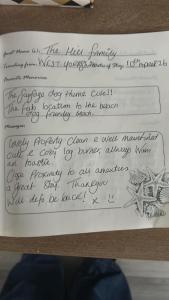 Guest Name(s): The Hill family
Travelling from: WEST YORKS Dates of Stay: 10th April 26
Favourite Memories:
The sausage dog theme Cute!!
The fab location to the beach
dog friendly beach.
Messages:
Lovely Property Clean & well maintained
cute & cosy log burner, always warm
en toastie.
Close Proximity to all amenities
a great stay. Thankyou
Will defo be back! x